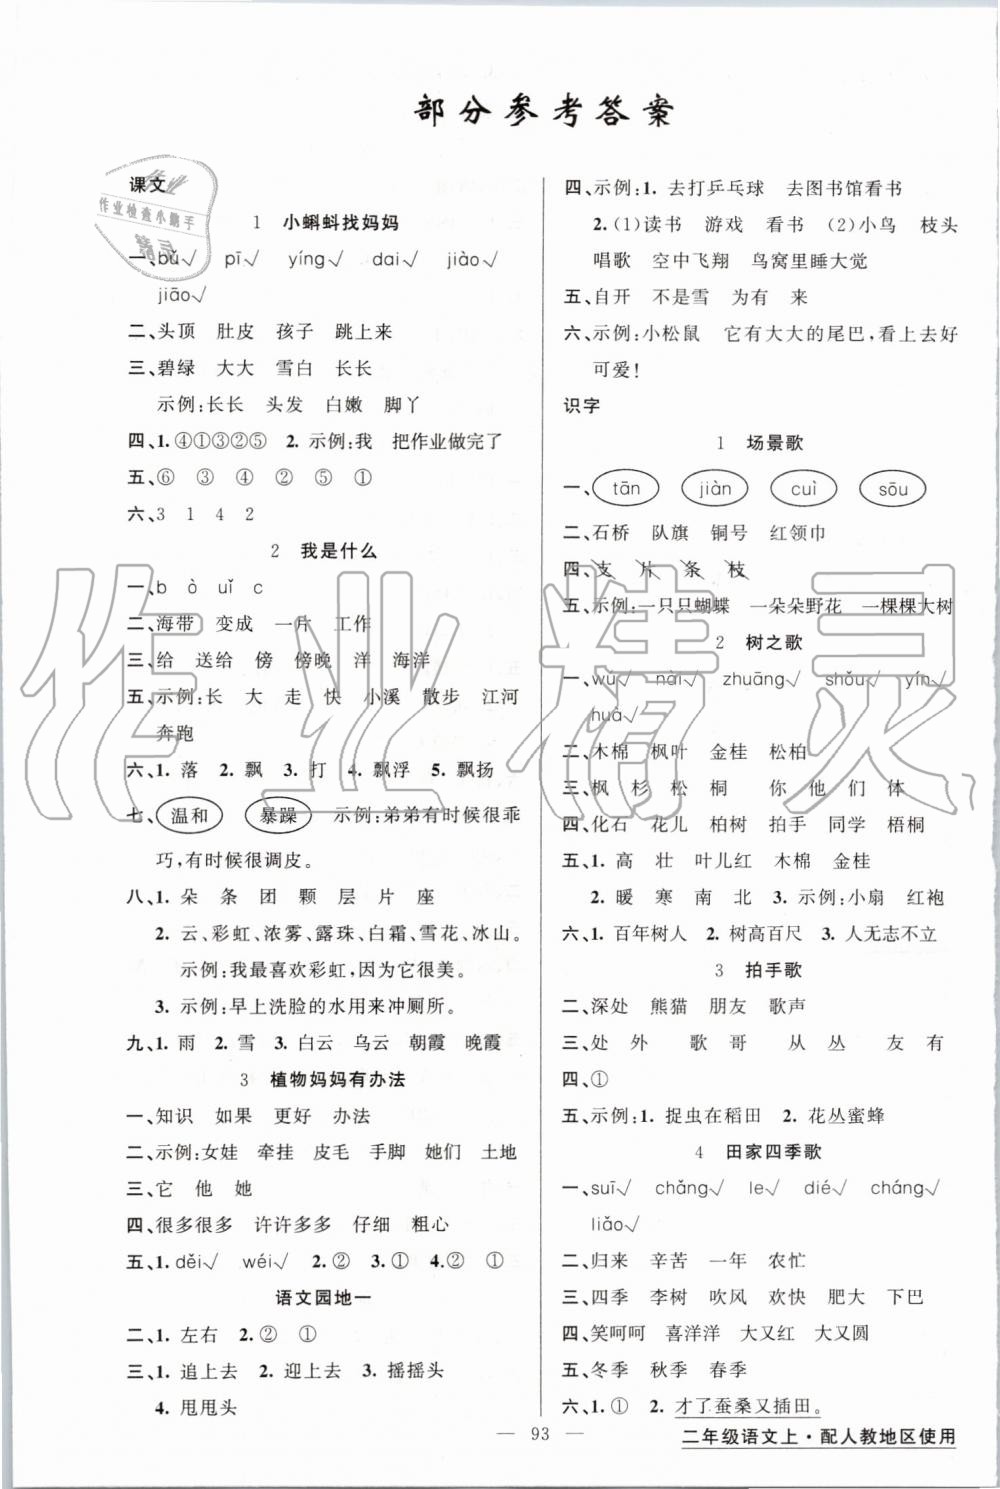 部分参考答案
作业
作业检查小帮手
课文
1 小蝌蚪找妈妈
一、bǔ√ pī√ yíng√ dai√ jiào√
jiāo√
二、头顶 肚皮 孩子 跳上来
三、碧绿 大大 雪白 长长
示例:长长 头发 白嫩 脚丫
四、1. ④①③②⑤ 2. 示例:我 把作业做完了
五、⑥ ③ ④ ② ⑤ ①
六、3 1 4 2
2 我是什么
一、b ò uǐ c
二、海带 变成 一片 工作
三、给 送给 傍 傍晚 洋 海洋
五、示例:长 大 走 快 小溪 散步 江河
奔跑
六、1. 落 2. 飘 3. 打 4. 飘浮 5. 飘扬
七、温和 暴躁 示例:弟弟有时候很乖
巧,有时候很调皮。
八、1. 朵 条 团 颗 层 片 座
2. 云、彩虹、浓雾、露珠、白霜、雪花、冰山。
示例:我最喜欢彩虹,因为它很美。
3. 示例:早上洗脸的水用来冲厕所。
九、1. 雨 2. 雪 3. 白云 乌云 朝霞 晚霞
3 植物妈妈有办法
一、知识 如果 更好 办法
二、示例:女娃 牵挂 皮毛 手脚 她们 土地
三、它 他 她
四、很多很多 许许多多 仔细 粗心
五、1. děi√ wéi√ 2. ② 3. ① 4. ② ①
语文园地一
二、1. 左右 2. ② ①
三、1. 追上去 2. 迎上去 3. 摇摇头
4. 甩甩头
四、示例:1. 去打乒乓球 去图书馆看书
2. (1)读书 游戏 看书 (2)小鸟 枝头
唱歌 空中飞翔 鸟窝里睡大觉
五、自开 不是雪 为有 来
六、示例:小松鼠 它有大大的尾巴,看上去好
可爱!
识字
1 场景歌
一、tān jiàn cuì sōu
二、石桥 队旗 铜号 红领巾
四、支 片 条 枝
五、示例:一只只蝴蝶 一朵朵野花 一棵棵大树
2 树之歌
一、wú√ nái√ zhuāng√ shǒu√ yín√
huà√
二、木棉 枫叶 金桂 松柏
三、枫 杉 松 桐 你 他 们 体
四、化石 花儿 柏树 拍手 同学 梧桐
五、1. 高 壮 叶儿红 木棉 金桂
2. 暖 寒 南 北 3. 示例:小扇 红袍
六、1. 百年树人 2. 树高百尺 3. 人无志不立
3 拍手歌
二、深处 熊猫 朋友 歌声
三、处 外 歌 哥 从 丛 友 有
四、①
五、示例:1. 捉虫在稻田 2. 花丛蜜蜂
4 田家四季歌
一、suī√ chǎng√ le√ dié√ cháng√
liǎo√
二、归来 辛苦 一年 农忙
三、四季 李树 吹风 欢快 肥大 下巴
四、笑呵呵 喜洋洋 大又红 大又圆
五、冬季 秋季 春季
六、1. ① 2. 才了蚕桑又插田。
— 93 —
二年级语文上·配人教地区使用
作业精灵